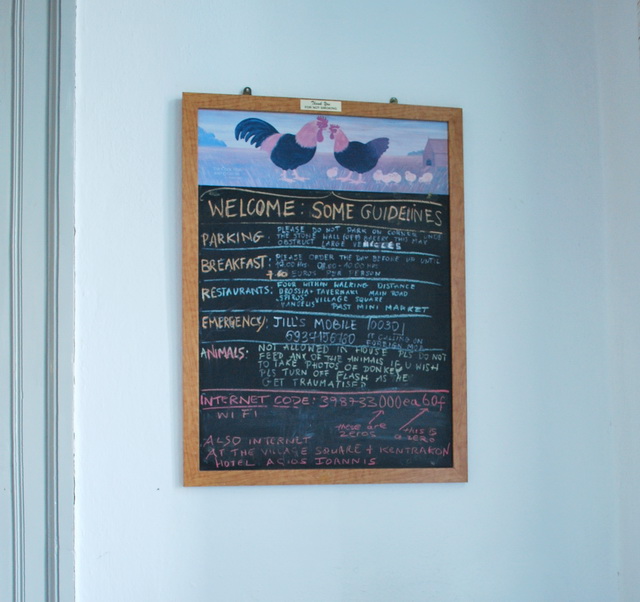 Thank You
FOR NOT SMOKING
WELCOME: SOME GUIDELINES
PARKING: PLEASE DO NOT PARK ON CORNER
THE STONE WALL THIS MAY
OBSTRUCT LARGE VEHICLES
BREAKFAST: PLEASE ORDER THE DAY BEFORE UP UNTIL
EUROS PER PERSON
RESTAURANTS: FOUR WITHIN WALKING DISTANCE
DROSSIA + TAVERNAKI MAIN ROAD
"SPIROS" VILLAGE SQUARE
VANGELIS' PAST MINI MARKET
EMERGENCY: JILL'S MOBILE (0030)
IF CALLING ON
FOREIGN MOB
ANIMALS: NOT ALLOWED IN HOUSE PLS DO NOT
FEED ANY OF THE ANIMALS IF U WISH
TO TAKE PHOTOS OF DONKEY
PLS TURN OFF FLASH AS HE
GET TRAUMATISED
INTERNET CODE: 398733000ea60f
WIFI
these are
zeros
this is
a zero
ALSO INTERNET
AT THE VILLAGE SQUARE + KENTRAKON
HOTEL AGIOS IOANNIS